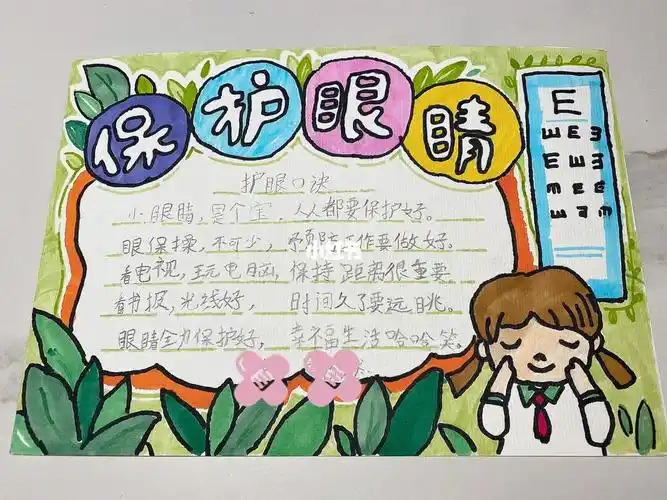 保护眼睛
护眼口诀
小眼睛,是个宝,人人都要保护好。
眼保操,不可少,预防工作要做好。
看电视,玩电脑,保持距离很重要
看书报,光线好,时间久了要远眺。
眼睛全力保护好,幸福生活哈哈笑。
E
E
小红书